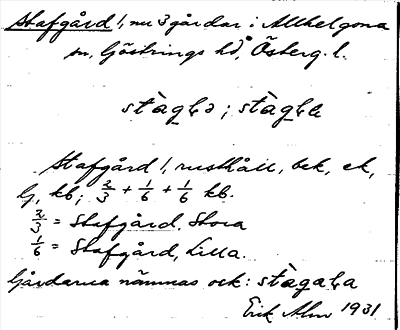 Stafgård !, nu 3 gårdar i Allhelgona
sn, Göstrings hd, Österg. l.
stàgḷə ; stàgḷe
Stafgård !, rusthåll, bek, ek,
lj, kb; 2/3 + 1/6 + 1/6 kb.
2/3 = Stafgård, Stora
1/6 = Stafgård, Lilla.
Gårdarna nämnas ock: stàgaḷa
Erik Alm 1931